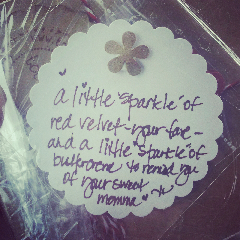 a little "sparkle" of
red velvet - your fave -
and a little "sparkle" of
buttercreme to remind you
of your sweet
momma"